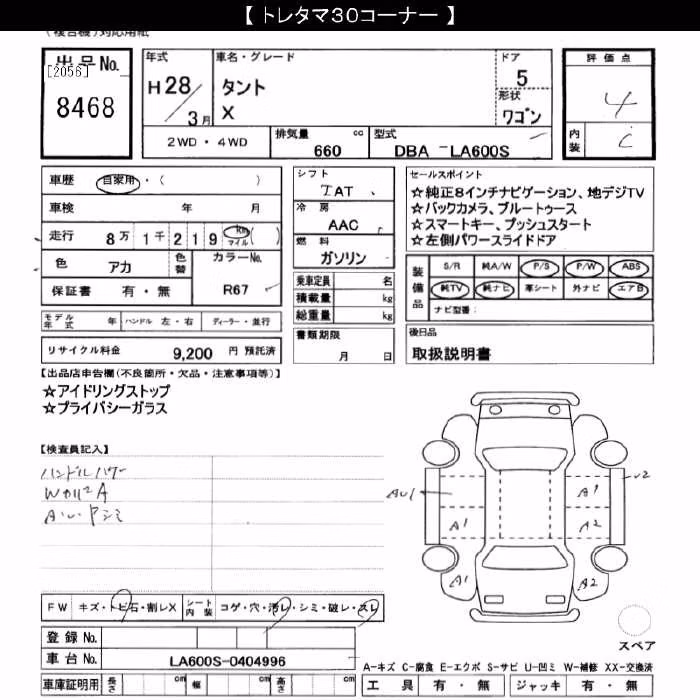 【 トレタマ30コーナー 】
(複合機)対応用紙
出品No.
[2056]
8468
年式
H28/3月
車名・グレード
タント
X
ドア
5
形状
ワゴン
評価点
4
内装
C
2WD・4WD
排気量 cc
660
型式
DBA -LA600S
車歴 自家用・( )
車検 年 月
走行 8万1千219 km マイル ( )
色 アカ 色替
カラーNo.
R67
保証書 有・無
シフト
IAT
冷房
AAC
燃料
ガソリン
乗車定員 名
積載量 kg
総重量 kg
セールスポイント
☆純正8インチナビゲーション、地デジTV
☆バックカメラ、ブルートゥース
☆スマートキー、プッシュスタート
☆左側パワースライドドア
装備品
S/R 純A/W P/S P/W ABS
純TV 純ナビ 革シート 外ナビ エアB
ナビ型番:
モデル年式 年 ハンドル 左・右 ディーラー・並行
書類期限
月 日
後日品
取扱説明書
リサイクル料金 9,200 円 預託済
【出品店申告欄(不良箇所・欠品・注意事項等)】
☆アイドリングストップ
☆プライバシーガラス
【検査員記入】
ハンドルパワー
A1
A1
A2
A1
A2
FW キズ・トビ石・割レX シート内装 コゲ・穴・汚レ・シミ・破レ・スレ
登録No.
車台No. LA600S-0404996
スペア
A-キズ C-腐食 E-エクボ S-サビ U-凹ミ W-補修 XX-交換済
車庫証明用 長さ cm 幅 cm 高さ cm
工具 有・無 ジャッキ 有・無